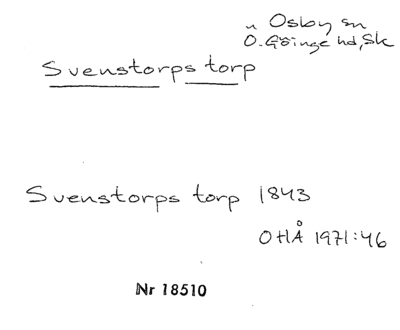 n Osby sn
Ö. Göinge hd, Sk
Svenstorps torp
Svenstorps torp 1843
OHÅ 1971:46
Nr 18510